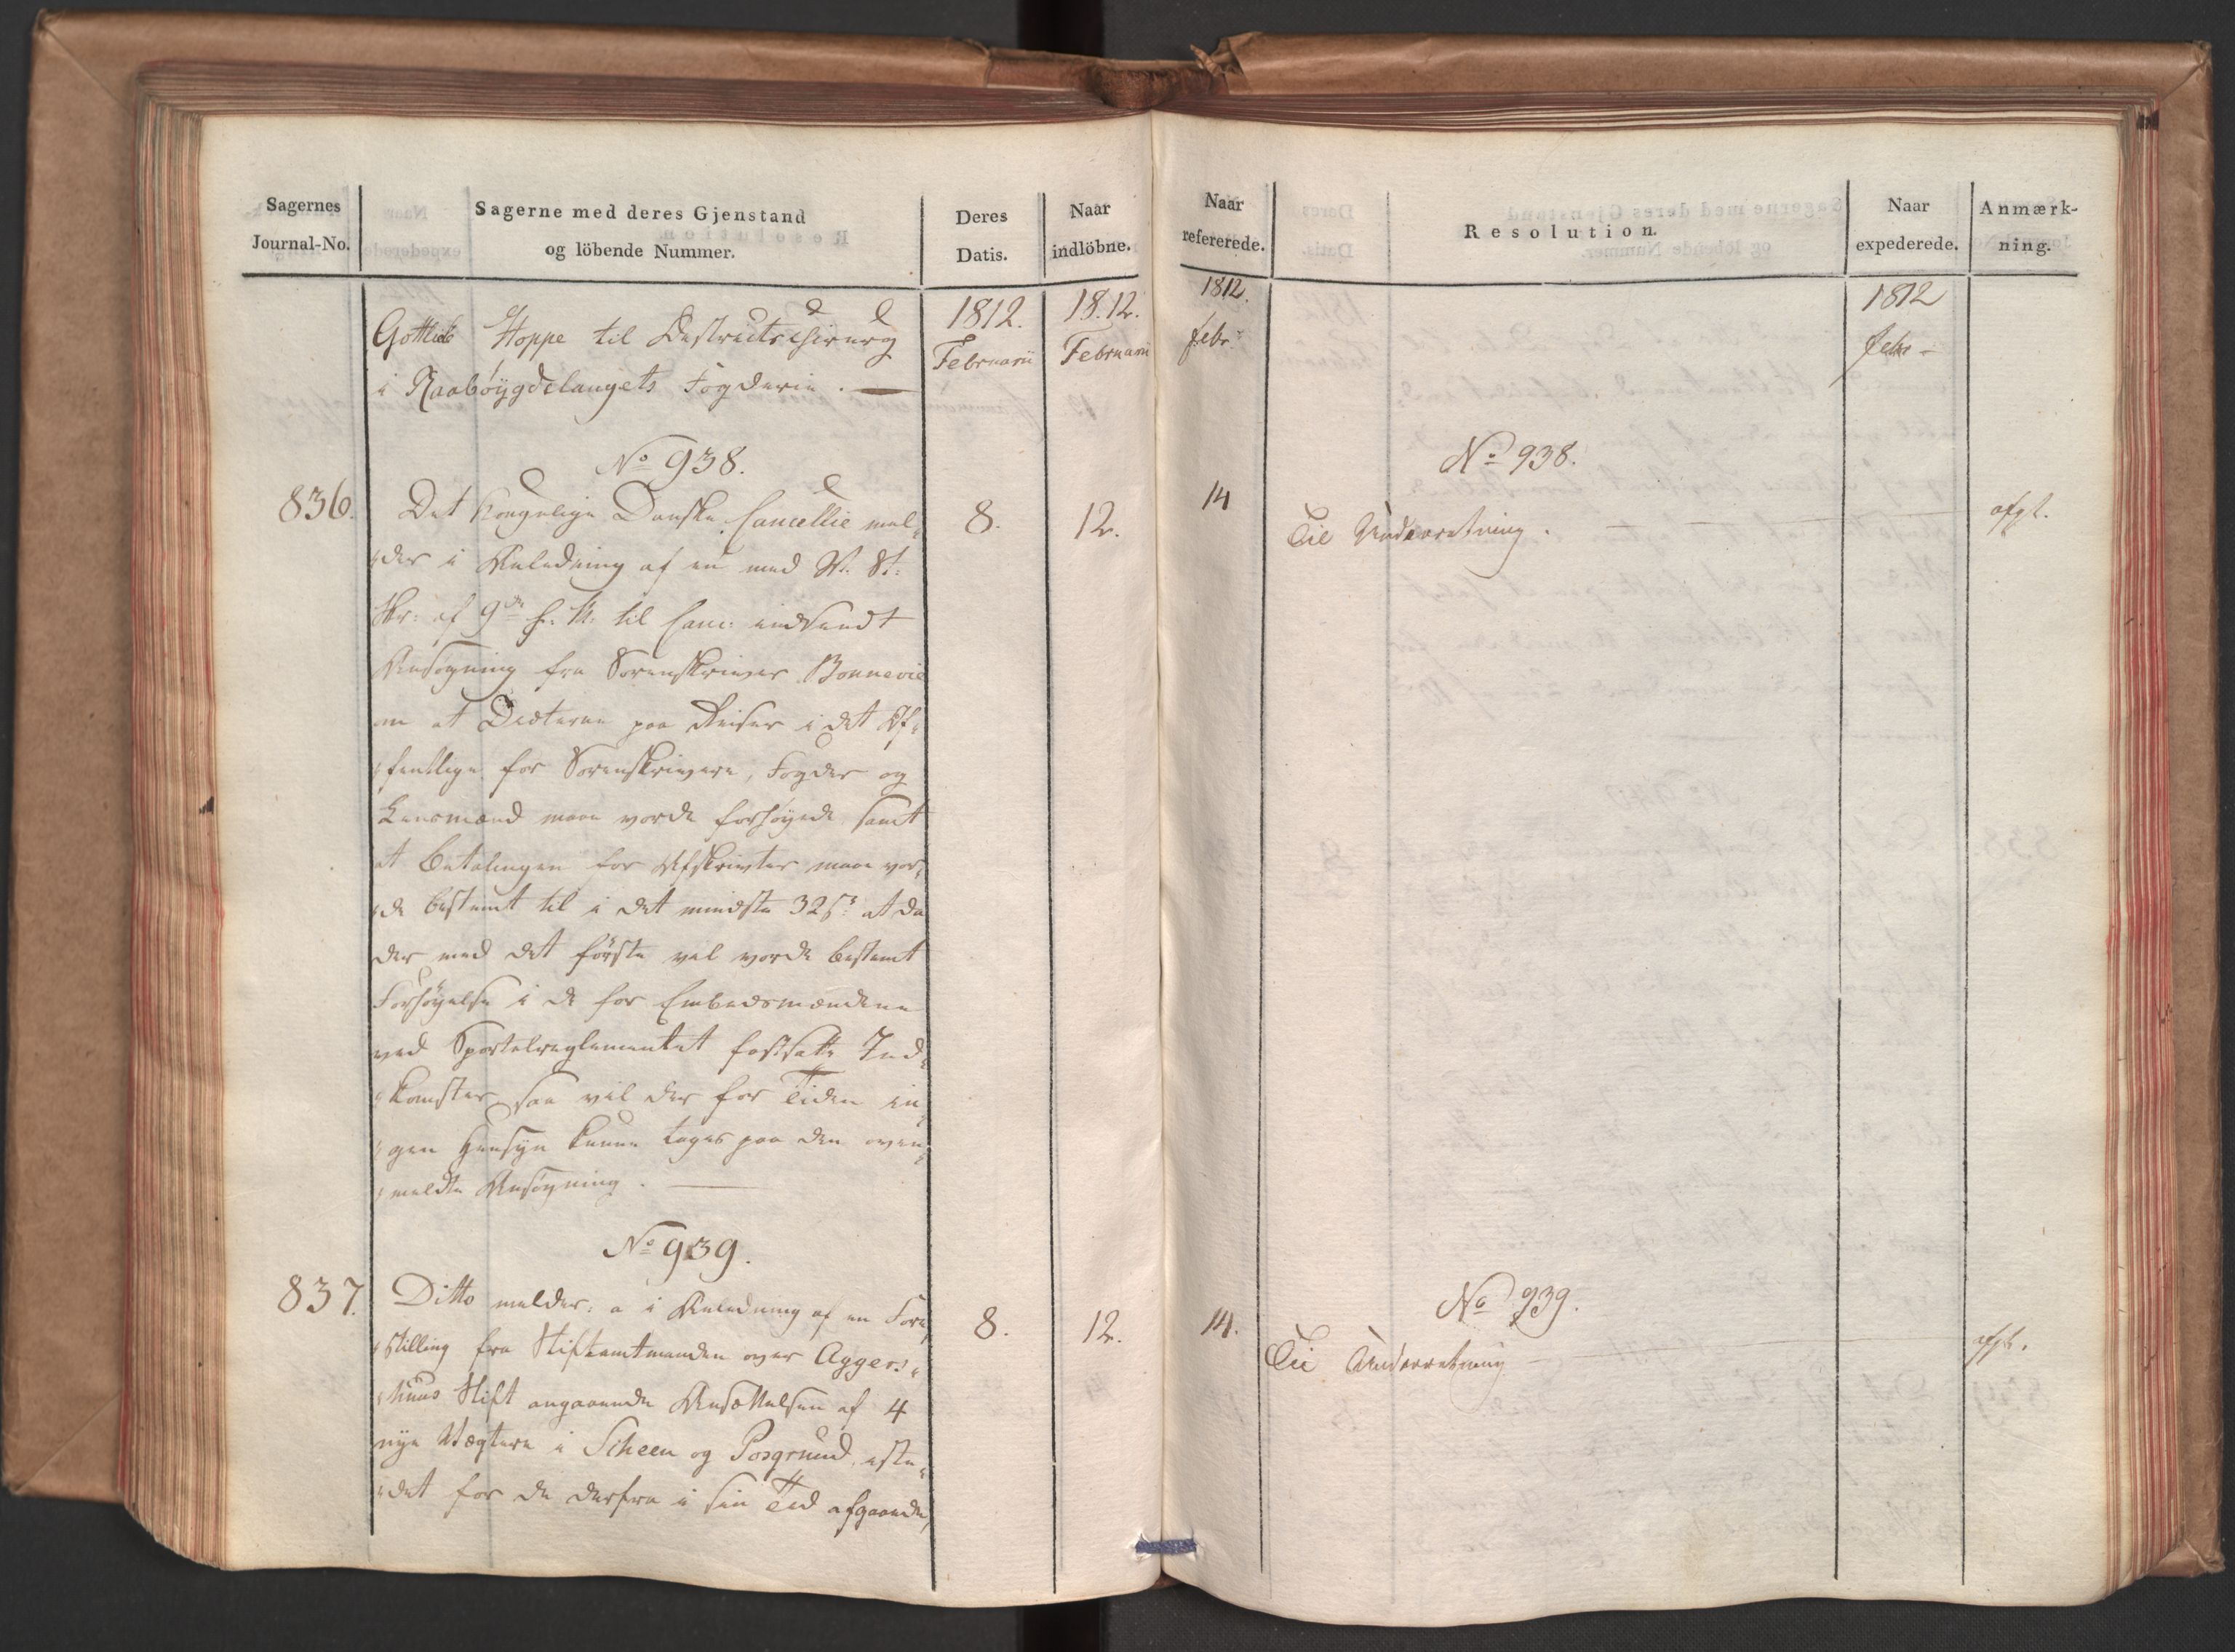 Sagernes
Journal-No.
Sagerne med deres Gjenstand
og löbende Nummer.
Deres
Datis.
Naar
indlöbne.
1812.
Februarii
18.12.
Februarii
Gottlieb Hoppe til Districtschirurg
i Raabøygdelaugets Fogderie. —
No 938.
836.
Det Kongelige Danske Cancellie mel-
der i Anledning af en med St:
Skr: af 9de f: M: til Canc: indsendt
Ansøgning fra Sorenskriver Bonnevie
om at Diæterne paa Reiser i det Of-
fentlige for Sorenskrivere, Fogder og
Lensmænd maae vorde forhøyede, samt
at Betalingen for Afskrivter maae vor-
de bestemt til i det mindste 32 s: at da
der med det første vil vorde bestemt
Forhøyelse i de for Embedsmændene
ved Sportelreglementet fastsatte Ind-
komster, saa vil der for Tiden in-
gen Hensyn kunne tages paa den oven-
meldte Ansøgning. —
8.
12.
No 939.
837.
Ditto melder: a i Anledning af en Fore-
stilling fra Stiftamtmanden over Agger-
huus Stift angaaende Ansættelsen af 4
nye Vægtere i Scheen og Porsgrund, iste-
det for de derfra i sin Tid afgaaende,
8.
12.
Naar
refererede.
Resolution.
Naar
expederede.
Anmærk-
ning.
1812.
febr:
1812
febr -
No 938.
14
Til Underretning. — — — —
afgl.
No 939.
14.
Til Underretning — —
afgl.